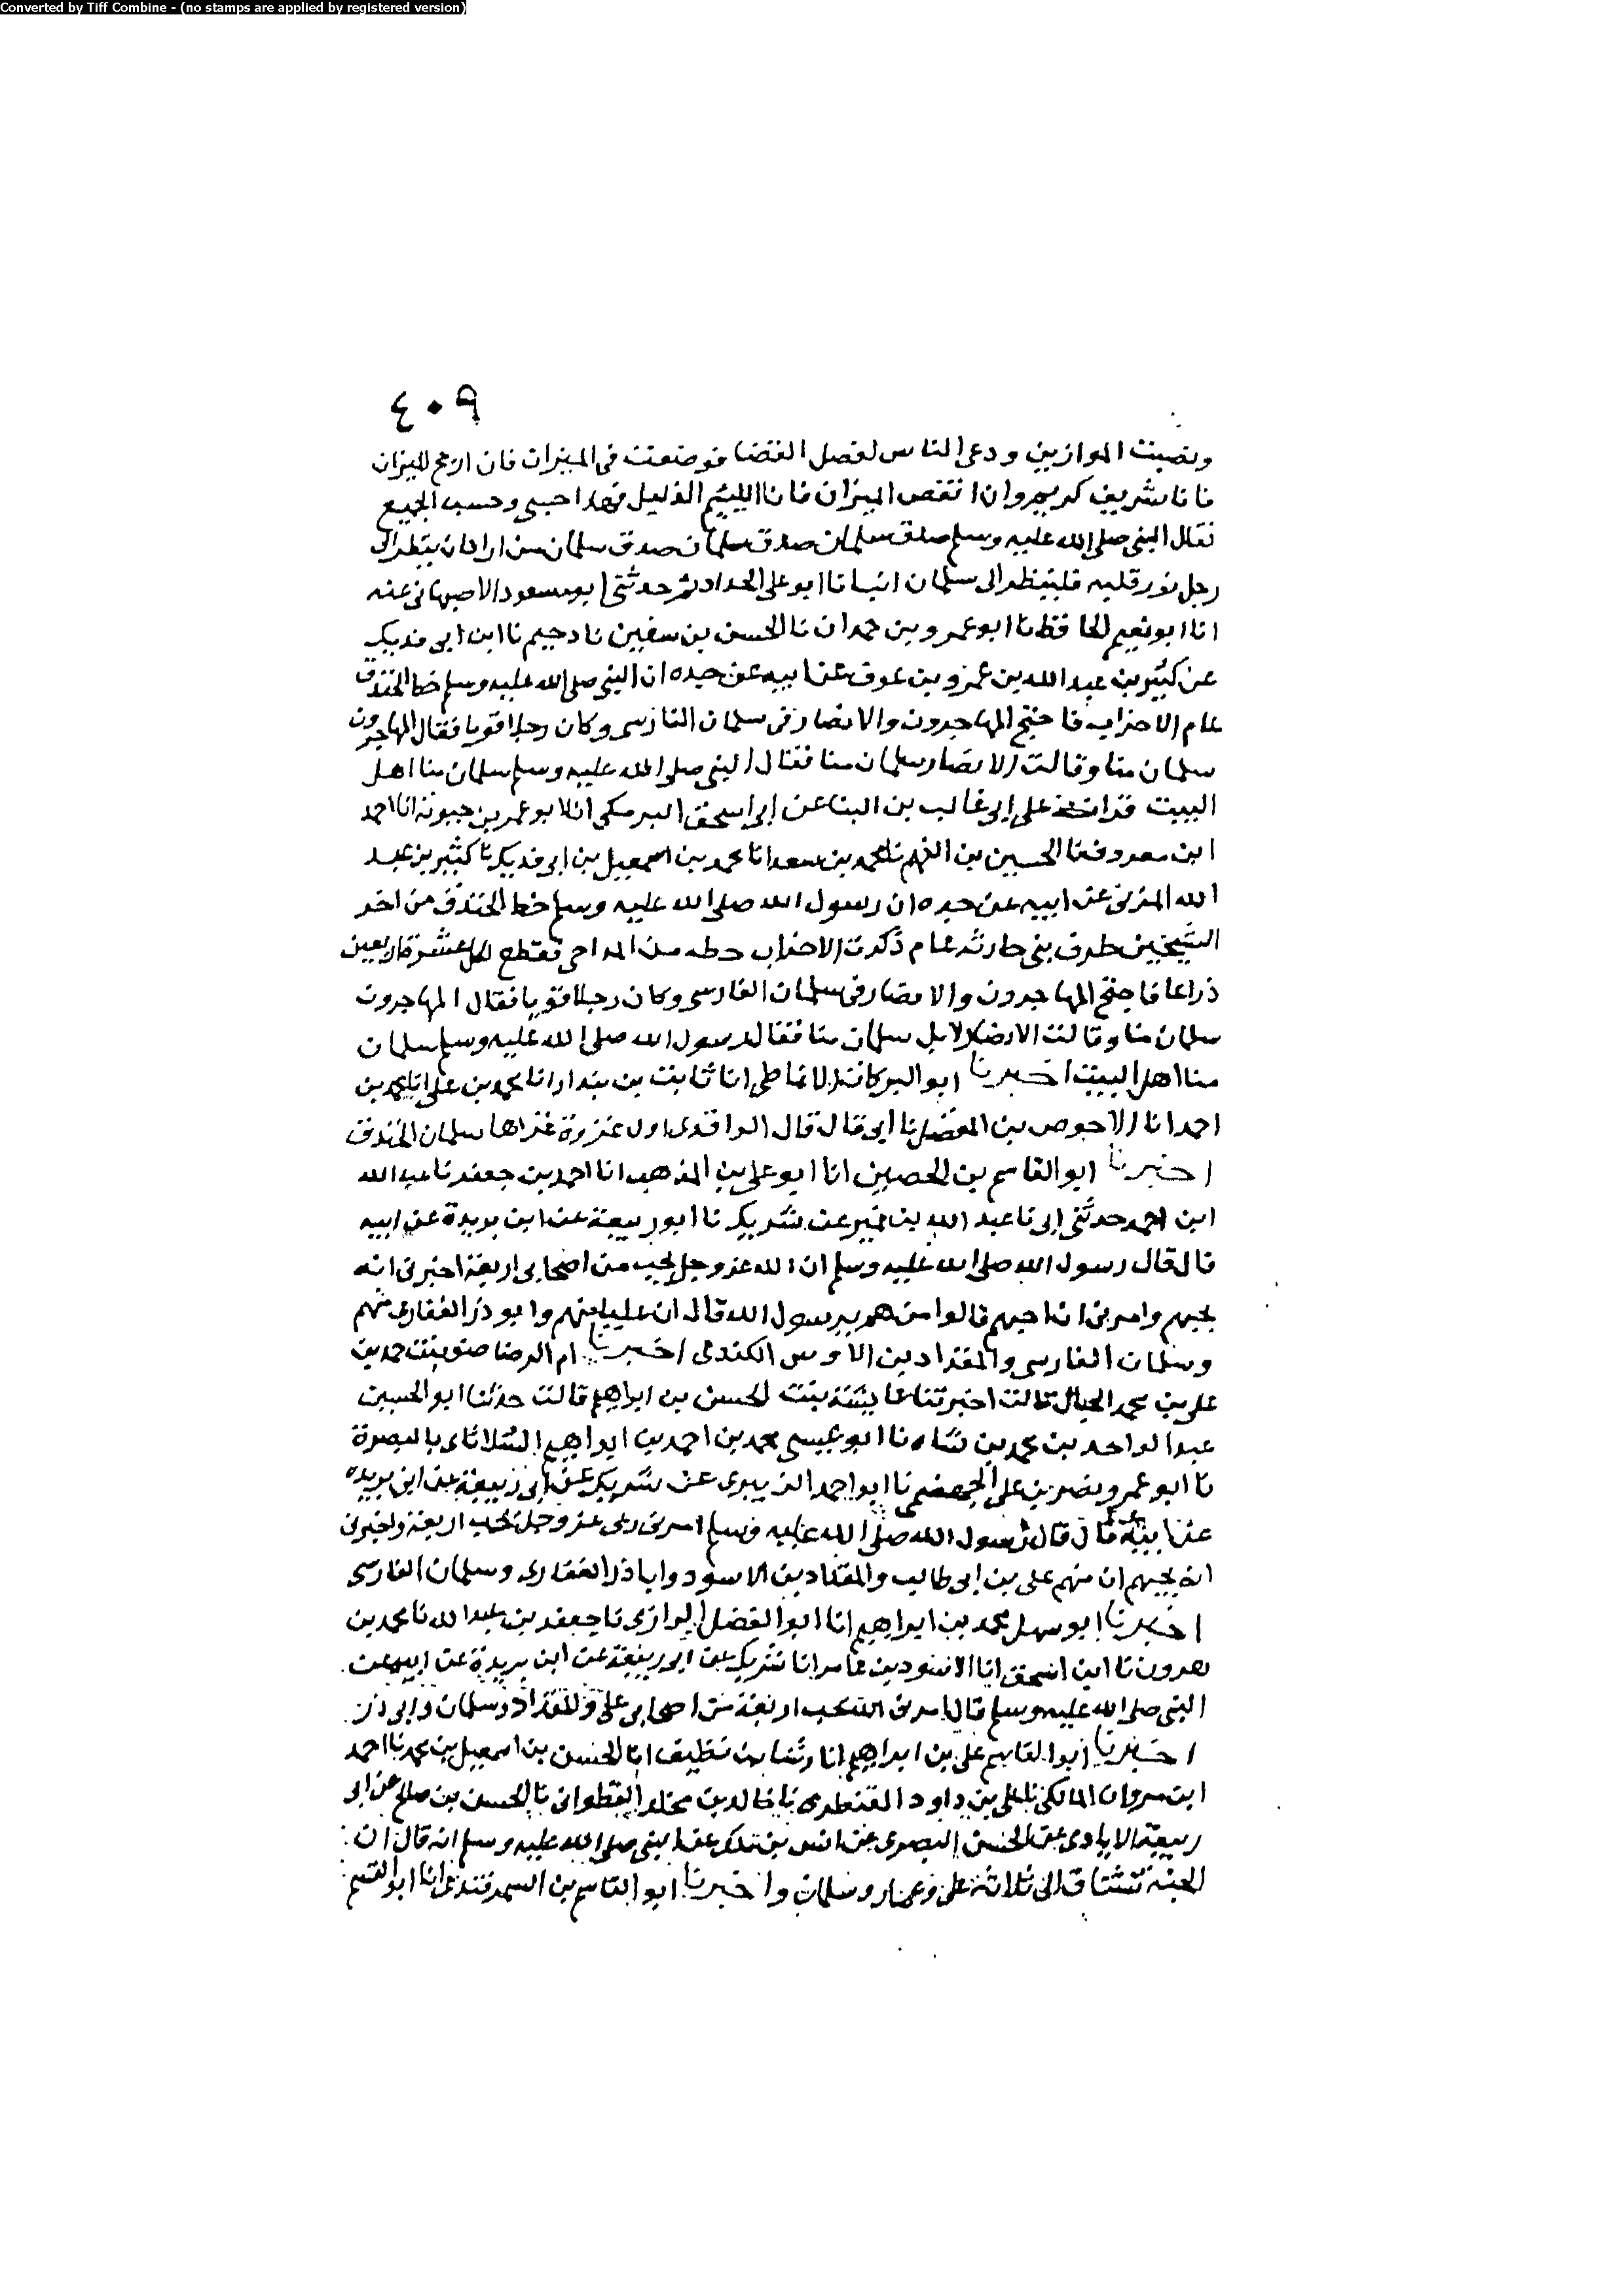 Converted by Tiff Combine - (no stamps are applied by registered version)
٤٠٩
ونصبت الموازين ودعى الناس لفصل القضا فوضعت في الميزان فان ارجح الميزان
فانا شريف كريم وان انتقص الميزان فانا اللئيم الذليل فهذا حسبي وحسب الجميع
فقال النبي صلى الله عليه وسلم صدق سلمان صدق سلمان صدق سلمان من اراد ان ينظر الى
رجل نور قلبه فلينظر الى سلمان انبانا ابو علي الحداد ثم حدثني ابو مسعود الاصبهاني عنه
انا ابو نعيم الحافظ نا ابو عمرو بن حمدان نا الحسن بن سفين نا دحيم نا ابن ابي فديك
عن كثير بن عبد الله بن عمرو بن عوف عن ابيه عن جده ان النبي صلى الله عليه وسلم خط الخندق
عام الاحزاب فاحتج المهاجرون والانصار في سلمان الفارسي وكان رجلا قويا فقال المهاجرون
سلمان منا وقالت الانصار سلمان منا فقال النبي صلى الله عليه وسلم سلمان منا اهل
البيت قرات على ابي غالب بن البنا عن ابي اسحق البرمكي انا ابو عمر بن حيوية انا احمد
ابن معروف نا الحسين بن الفهم نا محمد بن سعد انا محمد بن اسمعيل بن ابي فديك نا كثير بن عبد
الله المزني عن ابيه عن جده ان رسول الله صلى الله عليه وسلم خط الخندق من اخر
الشيخين طرف بني حارثة عام ذكرت الاحزاب خطه من المداحي فقطع لكل عشرة اربعين
ذراعا فاحتج المهاجرون والانصار في سلمان الفارسي وكان رجلا قويا فقال المهاجرون
سلمان منا وقالت الانصار لا بل سلمان منا فقال رسول الله صلى الله عليه وسلم سلمان
منا اهل البيت اخبرنا ابو البركات الانماطي انا ثابت بن بندار انا محمد بن علي انا محمد بن
احمد انا الاحوص بن المفضل نا ابي قال قال الواقدي اول غزوة غزاها سلمان الخندق
اخبرنا ابو القاسم بن الحصين انا ابو علي بن المذهب انا احمد بن جعفر نا عبد الله
ابن احمد حدثني ابي نا عبد الله بن نمير عن شريك نا ابو ربيعة عن ابن بريدة عن ابيه
قال قال رسول الله صلى الله عليه وسلم ان الله عز وجل يحب من اصحابي اربعة اخبرني انه
يحبهم وامرني ان احبهم قالوا من هم يا رسول الله قال ان عليا منهم وابو ذر الغفاري منهم
وسلمان الفارسي والمقداد بن الاوس الكندي اخبرنا ام الرضا ضو بنت حمد بن
علي بن محمد الحبال قالت اخبرتنا عايشة بنت الحسن بن ابراهيم قالت حدثنا ابو الحسين
عبد الواحد بن محمد بن شاه نا ابو عيسى محمد بن احمد بن ابراهيم الثلاثاي بالبصرة
نا ابو عمرو نصر بن علي الجهضمي نا ابو احمد الزبيري عن شريك عن ابي ربيعة عن ابن بريده
عن ابيه قال قال رسول الله صلى الله عليه وسلم امرني ربي عز وجل بحب اربعة واخبرني
انه يحبهم ان منهم علي بن ابي طالب والمقداد بن الاسود وابا ذر الغفاري وسلمان الفارسي
اخبرنا ابو سهل محمد بن ابراهيم انا ابو الفضل الرازي نا جعفر بن عبد الله نا محمد بن
هرون نا ابن اسحق انا الاسود بن عامر انا شريك عن ابي ربيعة عن ابن بريدة عن ابيه عن
النبي صلى الله عليه وسلم قال امرني الله بحب اربعة من اصحابي علي والمقداد وسلمان وابي ذر
اخبرنا ابو القاسم علي بن ابراهيم انا رشا بن نظيف انا الحسن بن اسمعيل بن محمد نا احمد
ابن مروان المالكي نا علي بن داود القنطري نا خالد بن مخلد القطواني نا الحسن بن صلح عن ابي
ربيعة الايادي عن الحسن البصري عن انس بن ملك عن النبي صلى الله عليه وسلم انه قال ان
الجنة تشتاق الى ثلاثة علي وعمار وسلمان واخبرنا ابو القاسم بن السمرقندي انا ابو القسم